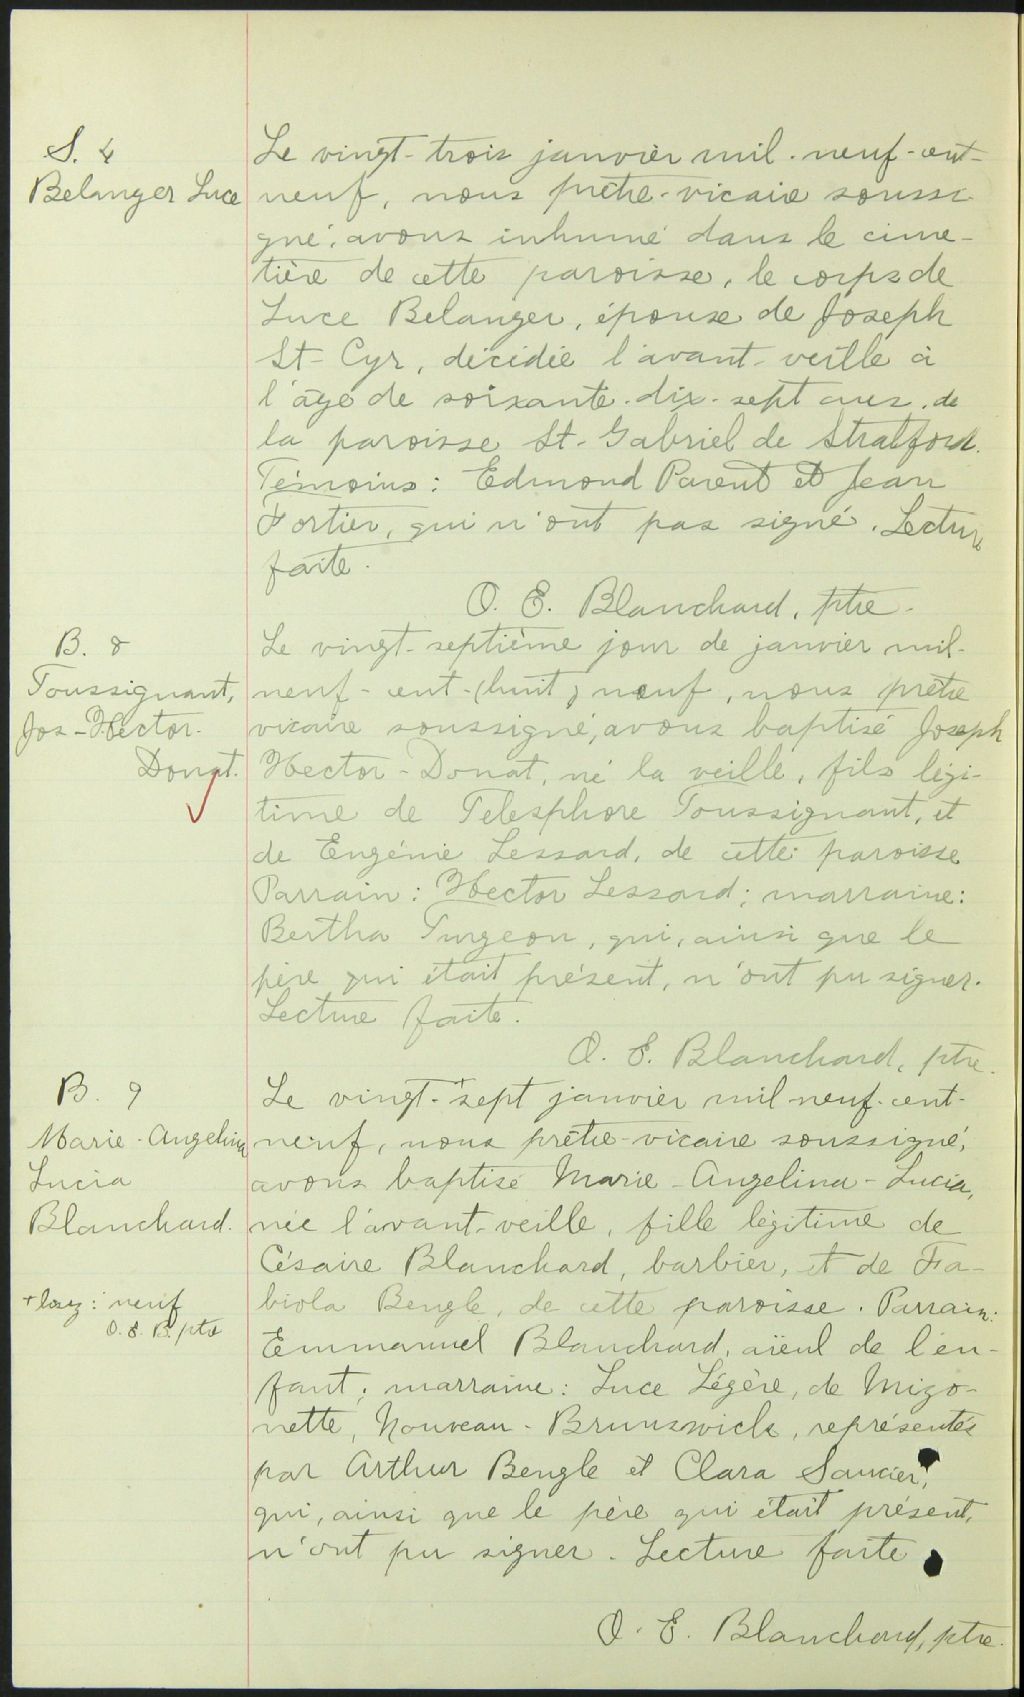 S. 4
Belanger Luce
Le vingt-trois janvier mil-neuf-cent-
neuf, nous prêtre-vicaire soussi
gné, avons inhumé dans le cime-
tière de cette paroisse, le corps de
Luce Belanger, épouse de Joseph
St-Cyr, décédée l'avant-veille à
l'âge de soixante-dix-sept ans, de
la paroisse St-Gabriel de Stratford.
Témoins: Edmond Parent et Jean
Fortier, qui n'ont pas signé. Lecture
faite.
O. E. Blanchard, ptre.
B. 8
Toussignant,
Jos-Hector-
Donat.
Le vingt-septième jour de janvier mil-
neuf-cent-(huit) neuf, nous prêtre
vicaire soussigné, avons baptisé Joseph
Hector-Donat, né la veille, fils légi-
time de Telesphore Toussignant, et
de Eugénie Lessard, de cette paroisse
Parrain: Hector Lessard; marraine:
Bertha Turgeon, qui, ainsi que le
père qui était présent, n'ont pu signer.
Lecture faite.
O. E. Blanchard, ptre.
B. 9
Marie-Angelina
Lucia
Blanchard.
+ neuf
O. E. B. ptr
Le vingt-+sept janvier mil-neuf-cent-
neuf, nous prêtre-vicaire soussigné,
avons baptisé Marie-Angelina-Lucia,
née l'avant-veille, fille légitime de
Césaire Blanchard, barbier, et de Fa-
biola Bengle, de cette paroisse. Parrain:
Emmanuel Blanchard, aïeul de l'en-
fant; marraine: Luce Légère, de Mizo-
nette, Nouveau-Brunswick, représentés
par Arthur Bengle et Clara Saucier,
qui, ainsi que le père qui était présent,
n'ont pu signer. Lecture faite
O. E. Blanchard, ptre.